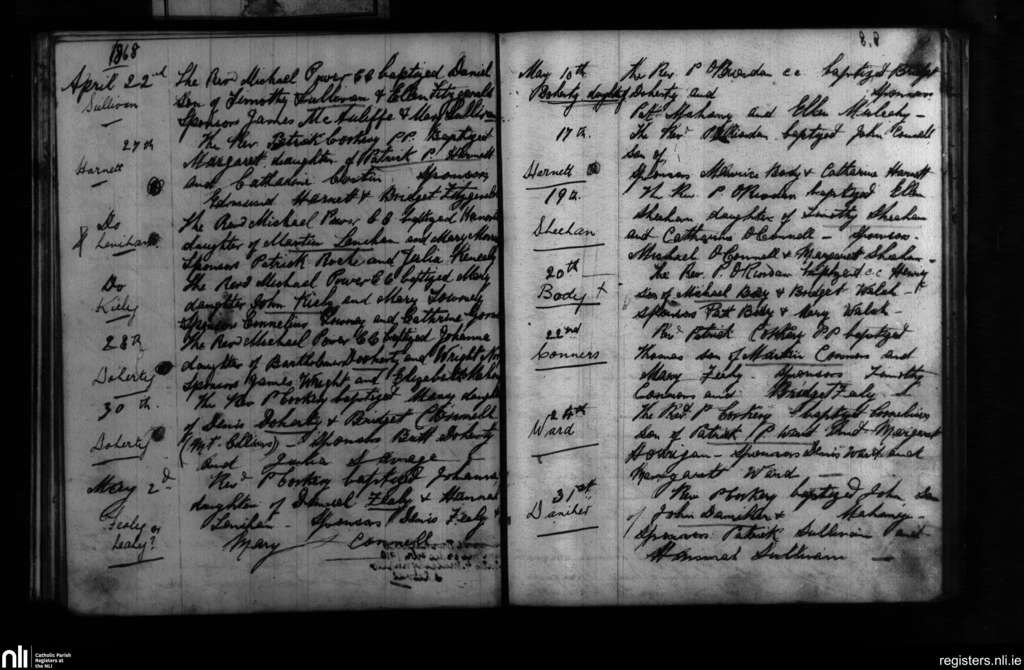 1868
April 22nd The Revd Michael Power CC baptized Daniel
Sullivan son of Timothy Sullivan & Ellen Fitzgerald
Sponsors James McAuliffe & Mary Sullivan
27th The Rev. Patrick Corkery P.P. Baptized
Harnett Margaret daughter of Patrick P. Harnett
and Catharine Sponsors
Edmund Harnet & Bridget Fitzgerald
Do The Revd Michael Power CC baptized
Lenihan daughter of Martin Lenehan and Mary
Sponsors Patrick Roche and Julia
Do The Revd Michael Power CC baptized Mary
Kiely daughter John Kiely and Mary Downey
Sponsors Cornelius Downey and Cathrine
28th The Revd Michael Power CC baptized Johanna
Doherty daughter of Bartholomew Dogherty and Wright
Sponsors James Wright and Elizabeth
30th The Rev P Corkery baptized Mary daughter
of Denis Doherty & Bridget Connell
Doherty (Mt. Collins) — Sponsors Batt Doherty
and Julia Savage
May 2d Revd P Corkery baptized Johanna
daughter of Daniel Fealy & Hannah
Fealy or Lenihan — Sponsors Denis Fealy &
Lealy? Mary Connell
8.8
May 10th The Rev. P O'Riordan cc baptized Bridget
Doherty daughter of Doherty and Sponsors
Patt Mahony and Ellen Mulcahy —
17th The Revd O'Riordan baptized John
son of
Harnett Sponsors Maurice Body & Catharine Harnett
19th The Rev. P O'Riordan baptized Ellen
Sheehan daughter of Timothy Sheehan
Sheehan and Catharine O'Connell — Sponsors —
Michael O'Connell & Margaret Sheehan —
20th The Rev. P. O'Riordan baptized c.c Henry
Body + son of Michael Body & Bridget Walsh —
Sponsors Patt Body & Mary Walsh —
22nd Revd Patrick Corkery P.P baptized
Conners Thomas son of Martin Connors and
Mary Fealy. Sponsors Timothy
Connors and Bridget Fealy
24th The Revd P Corkery baptized Cornelius
Ward son of Patrick P Ward and Margaret
Horrigan — Sponsors Denis Ward and
Margaret Ward —
31st Rev P Corkery baptized John Son
Daniher of John Daniher & Mahony —
Sponsors Patrick Sullivan and
Hannah Sullivan —
nli
Catholic Parish
Registers at
the NLI
registers.nli.ie